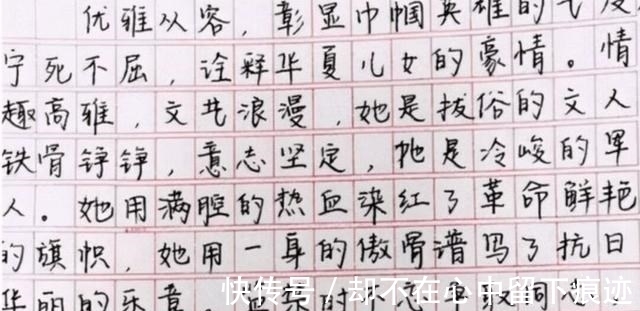 优雅从容，彰显巾帼英雄的气度
宁死不屈，诠释华夏儿女的豪情。情
趣高雅，文艺浪漫，她是拔俗的文人
铁骨铮铮，意志坚定，她是冷峻的军
人。她用满腔的热血染红了革命鲜艳
的旗帜，她用一身的傲骨谱写了抗日
华丽的乐章。
快传号/却不在心中留下痕迹